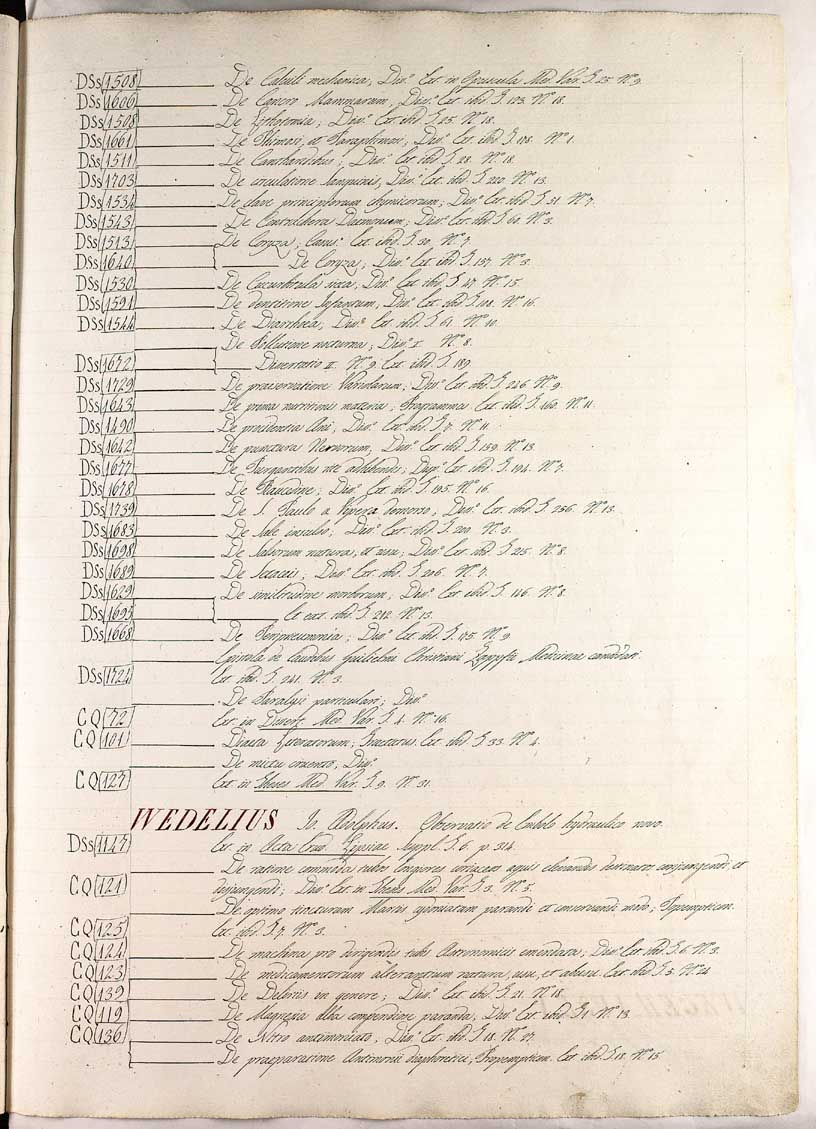 DSs 1508 De Calculi mechanica, Diss.e Ext. in Opuscula Med. Var. T. 25. N.o 9.
DSs 1606 De Cancro Mammarum, Diss.e Ext. ibid. T. 123. N.o 18.
DSs 1508 De Lithotomia; Diss.e Ext. ibid. T. 25. N.o 18.
DSs 1661 De Phimosi, et Paraphimosi; Diss.e Ext. ibid. T. 178. N.o 1.
DSs 1511 De Cantharidibus; Diss.e Ext. ibid. T. 28. N.o 18.
DSs 1703 De circulatione sanguinis, Diss.e Ext. ibid. T. 220. N.o 13.
DSs 1534 De clave principiorum chymicorum; Diss.e Ext. ibid. T. 51. N.o 7.
DSs 1543 De Daemonum; Diss.e Ext. ibid. T. 60. N.o 3.
DSs 1513 De Coryza; Ext. ibid. T. 30. N.o 7.
DSs 1640 De Coryza; Diss.e Ext. ibid. T. 157. N.o 3.
DSs 1530 De Cucurbitulis sicca, Diss.e Ext. ibid. T. 47. N.o 15.
DSs 1591 De dentitione Infantum, Diss.e Ext. ibid. T. 108. N.o 16.
DSs 1544 De Diarrhoea; Diss.e Ext. ibid. T. 61. N.o 10.
De Pollutione nocturna; Diss.e I. N.o 8.
DSs 1672 Dissertatio II. N.o 9. Ext. ibid. T. 189.
DSs 1729 De praeservatione Variolarum; Diss.e Ext. ibid. T. 246. N.o 9.
DSs 1643 De prima nutritionis materia; Programma. Ext. ibid. T. 160. N.o 11.
DSs 1490 De procidentia Ani; Diss.e Ext. ibid. T. 7. N.o 11.
DSs 1642 De punctura Nervorum, Diss.e Ext. ibid. T. 159. N.o 13.
DSs 1677 De Purgantibus rite adhibendis; Diss.e Ext. ibid. T. 194. N.o 7.
DSs 1678 De Raucedine; Diss.e Ext. ibid. T. 195. N.o 16.
DSs 1739 De S. Paulo a Vipera demorso; Diss.e Ext. ibid. T. 256. N.o 13.
DSs 1683 De Sale insulso; Diss.e Ext. ibid. T. 200. N.o 3.
DSs 1698 De Saporum natura, et usu; Diss.e Ext. ibid. T. 215. N.o 8.
DSs 1689 De Setaceis; Diss.e Ext. ibid. T. 206. N.o 7.
DSs 1629 De similitudine morborum; Diss.e Ext. ibid. T. 146. N.o 8.
DSs 1695 Et ext. ibid. T. 212. N.o 13.
DSs 1668 De Peripneumonia; Diss.e Ext. ibid. T. 175. N.o 9.
Epistola de laudibus Guilielmi Christiani Medicinae candidati.
DSs 1724 Ext. ibid. T. 241. N.o 3.
De Paralysi particulari; Diss.e
CQ 72 Ext. in Diversi Med. Var. T. 4. N.o 16.
CQ 101 Diaeta Literatorum; Tractatus. Ext. ibid. T. 33. N.o 4.
De mictu cruento, Diss.e
CQ 127 Ext. in Theses Med. Var. T. 9. N.o 31.
WEDELIUS Io. Adolphus. Observatio de Embolo hydraulico novo.
DSs 1147 Ext. in Acta Erud. Lipsiae Suppl. T. 6. p. 314.
De ratione commoda tubos longiores aquis elevandis destinatos conjungendi, et
CQ 121 disjungendi; Diss.e Ext. in Theses Med. Var. T. 3. N.o 5.
De optimo tincturam Martis cydoniatam parandi et conservandi modo; Propempticon.
CQ 125 Ext. ibid. T. 7. N.o 3.
CQ 124 De machina pro dirigendis tubis Astronomicis emendata; Diss.e Ext. ibid. T. 6. N.o 3.
CQ 123 De medicamentorum alterantium natura, usu, et abusu. Ext. ibid. T. 5. N.o 24
CQ 139 De Deliriis in genere; Diss.e Ext. ibid. T. 21. N.o 18.
CQ 119 De Magnesia alba compendiose paranda, Diss.e Ext. ibid. T. 1. N.o 13.
CQ 136 De Nitro antimoniato, Diss.e Ext. ibid. T. 18. N.o 27.
De praeparatione Antimonii diaphoretici; Propempticon. Ext. ibid. T. 18. N.o 15.